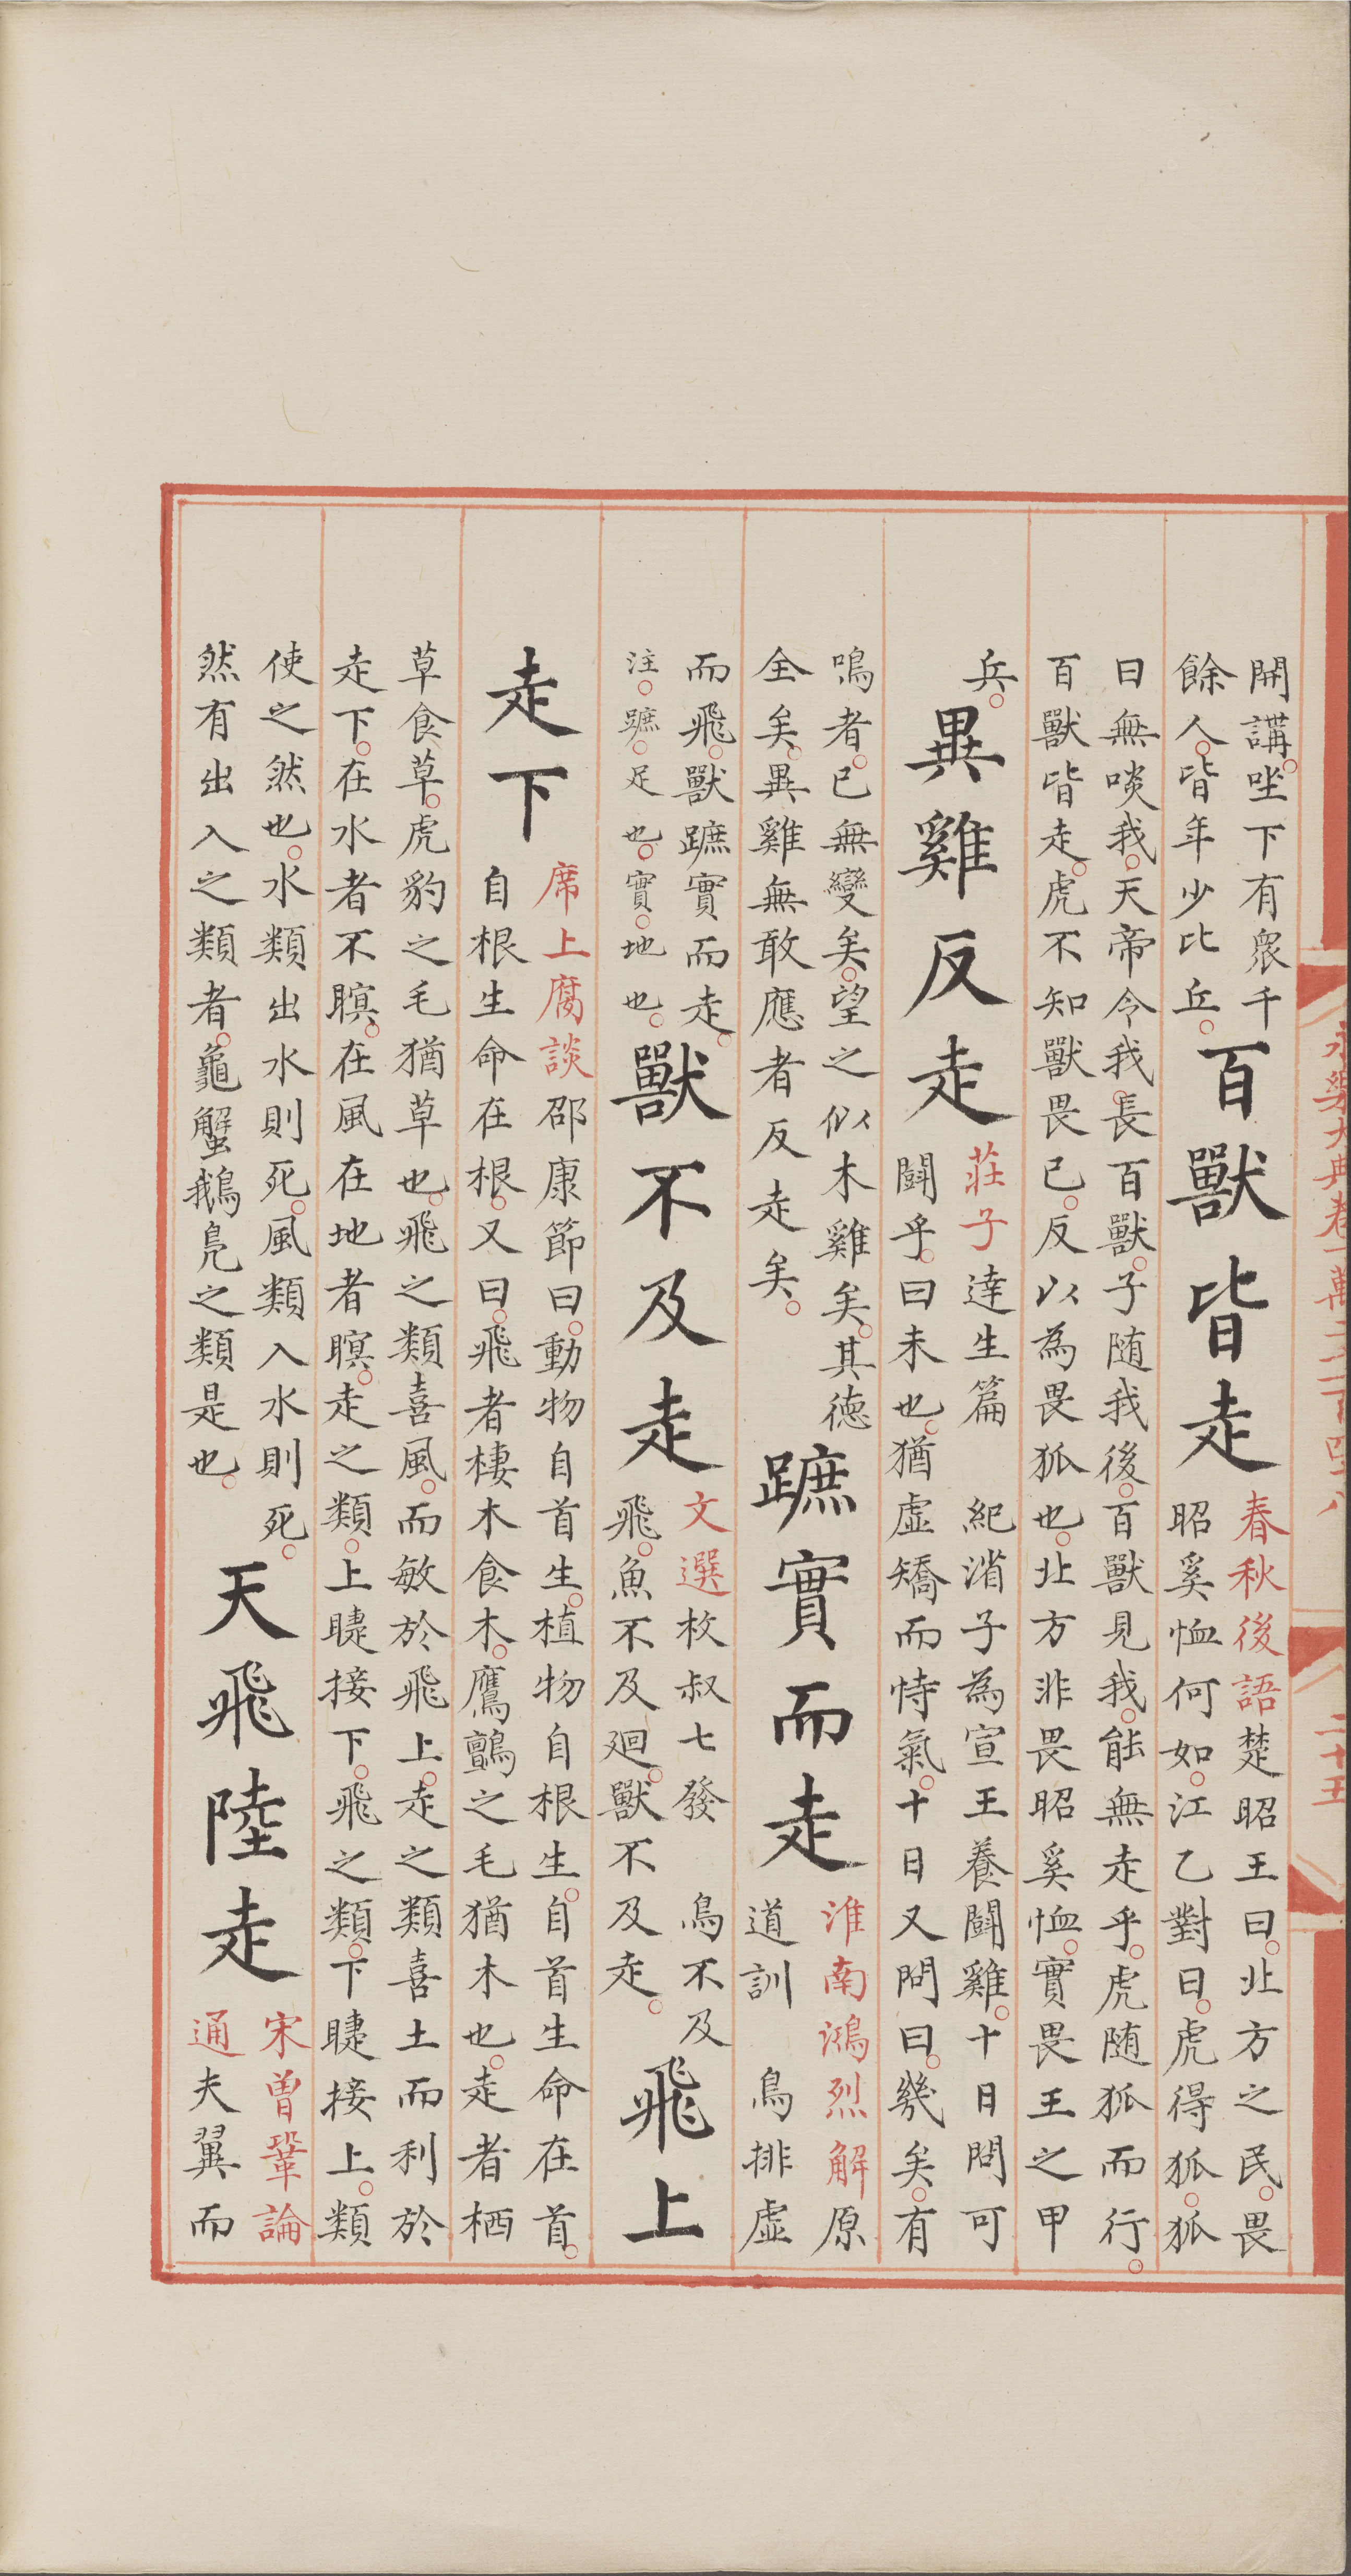 永樂大典卷一萬
二十五
開講。坐下有衆千
餘人。皆年少比丘。
百獸皆走
春秋後語楚昭王曰。北方之民。畏
昭奚恤何如。江乙對曰。虎得狐。狐
曰無啖我。天帝令我。長百獸。子随我後。百獸見我。能無走乎。虎随狐而行。
百獸皆走。虎不知獸畏已。反以為畏狐也。北方非畏昭奚恤。實畏王之甲
兵。
異雞反走
莊子達生篇 紀渻子為宣王養鬪雞。十日問可
鬪乎。曰未也。猶虛矯而恃氣。十日又問曰。幾矣。有
鳴者。已無變矣。望之似木雞矣。其德
全矣。異雞無敢應者反走矣。
蹠實而走
淮南鴻烈解原
道訓 鳥排虛
而飛。獸蹠實而走。
注。蹠。足也。實。地也。
獸不及走
文選枚叔七發 鳥不及
飛。魚不及廻。獸不及走。
飛上
走下
席上腐談邵康節曰。動物自首生。植物自根生。自首生命在首。
自根生命在根。又曰。飛者棲木食木。鷹鸇之毛猶木也。走者栖
草食草。虎豹之毛猶草也。飛之類喜風。而敏於飛上。走之類喜土而利於
走下。在水者不瞑。在風在地者瞑。走之類。上睫接下。飛之類。下睫接上。類
使之然也。水類出水則死。風類入水則死。
然有出入之類者。龜蟹鵝鳧之類是也。
天飛陸走
宋曽鞏論
通夫翼而